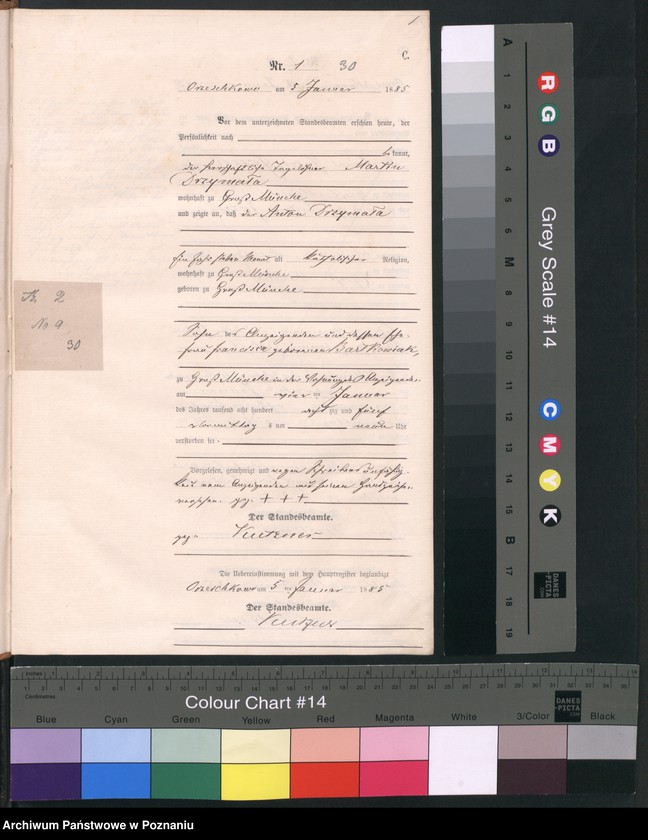 1
C.
Nr. 1 30
Orzeschkowo am 5 Januar 1885
Vor dem unterzeichneten Standesbeamten erschien heute, der
Persönlichkeit nach
bekannt,
der herrschaftliche Tagelöhner Martin
Drzymała
wohnhaft zu Groß Münche
und zeigte an, daß der Anton Drzymała
Ein Jahr sieben Monat alt katholischer Religion,
wohnhaft zu Groß Münche
geboren zu Groß Münche
Sohn des Anzeigenden und dessen Ehe-
frau Francisca geborenen Bartkowiak,
zu Groß Münche in der Wohnung des Anzeigenden
am vier ten Januar
des Jahres tausend acht hundert acht zig und fünf
Vormittag s um neun Uhr
verstorben sei.
Vorgelesen, genehmigt und wegen Schreibens Unfähig-
keit vom Anzeigenden mit seinem Handzeichen
versehen. gez. + + +
Der Standesbeamte.
gez.
Die Uebereinstimmung mit dem Hauptregister beglaubigt
Orzeschkowo am 5 ten Januar 1885
Der Standesbeamte.
No 2
No 9
30
A 1 2 3 4 5 6 M 8 9 10 11 12 13 14 15 B 17 18 19
R
G
B
Grey Scale #14
C
M
Y
K
DANES
-PICTA
.COM
Inches
Centimetres
Colour Chart #14
DANES
-PICTA
.COM
Blue Cyan Green Yellow Red Magenta White 3/Color Black
Archiwum Państwowe w Poznaniu